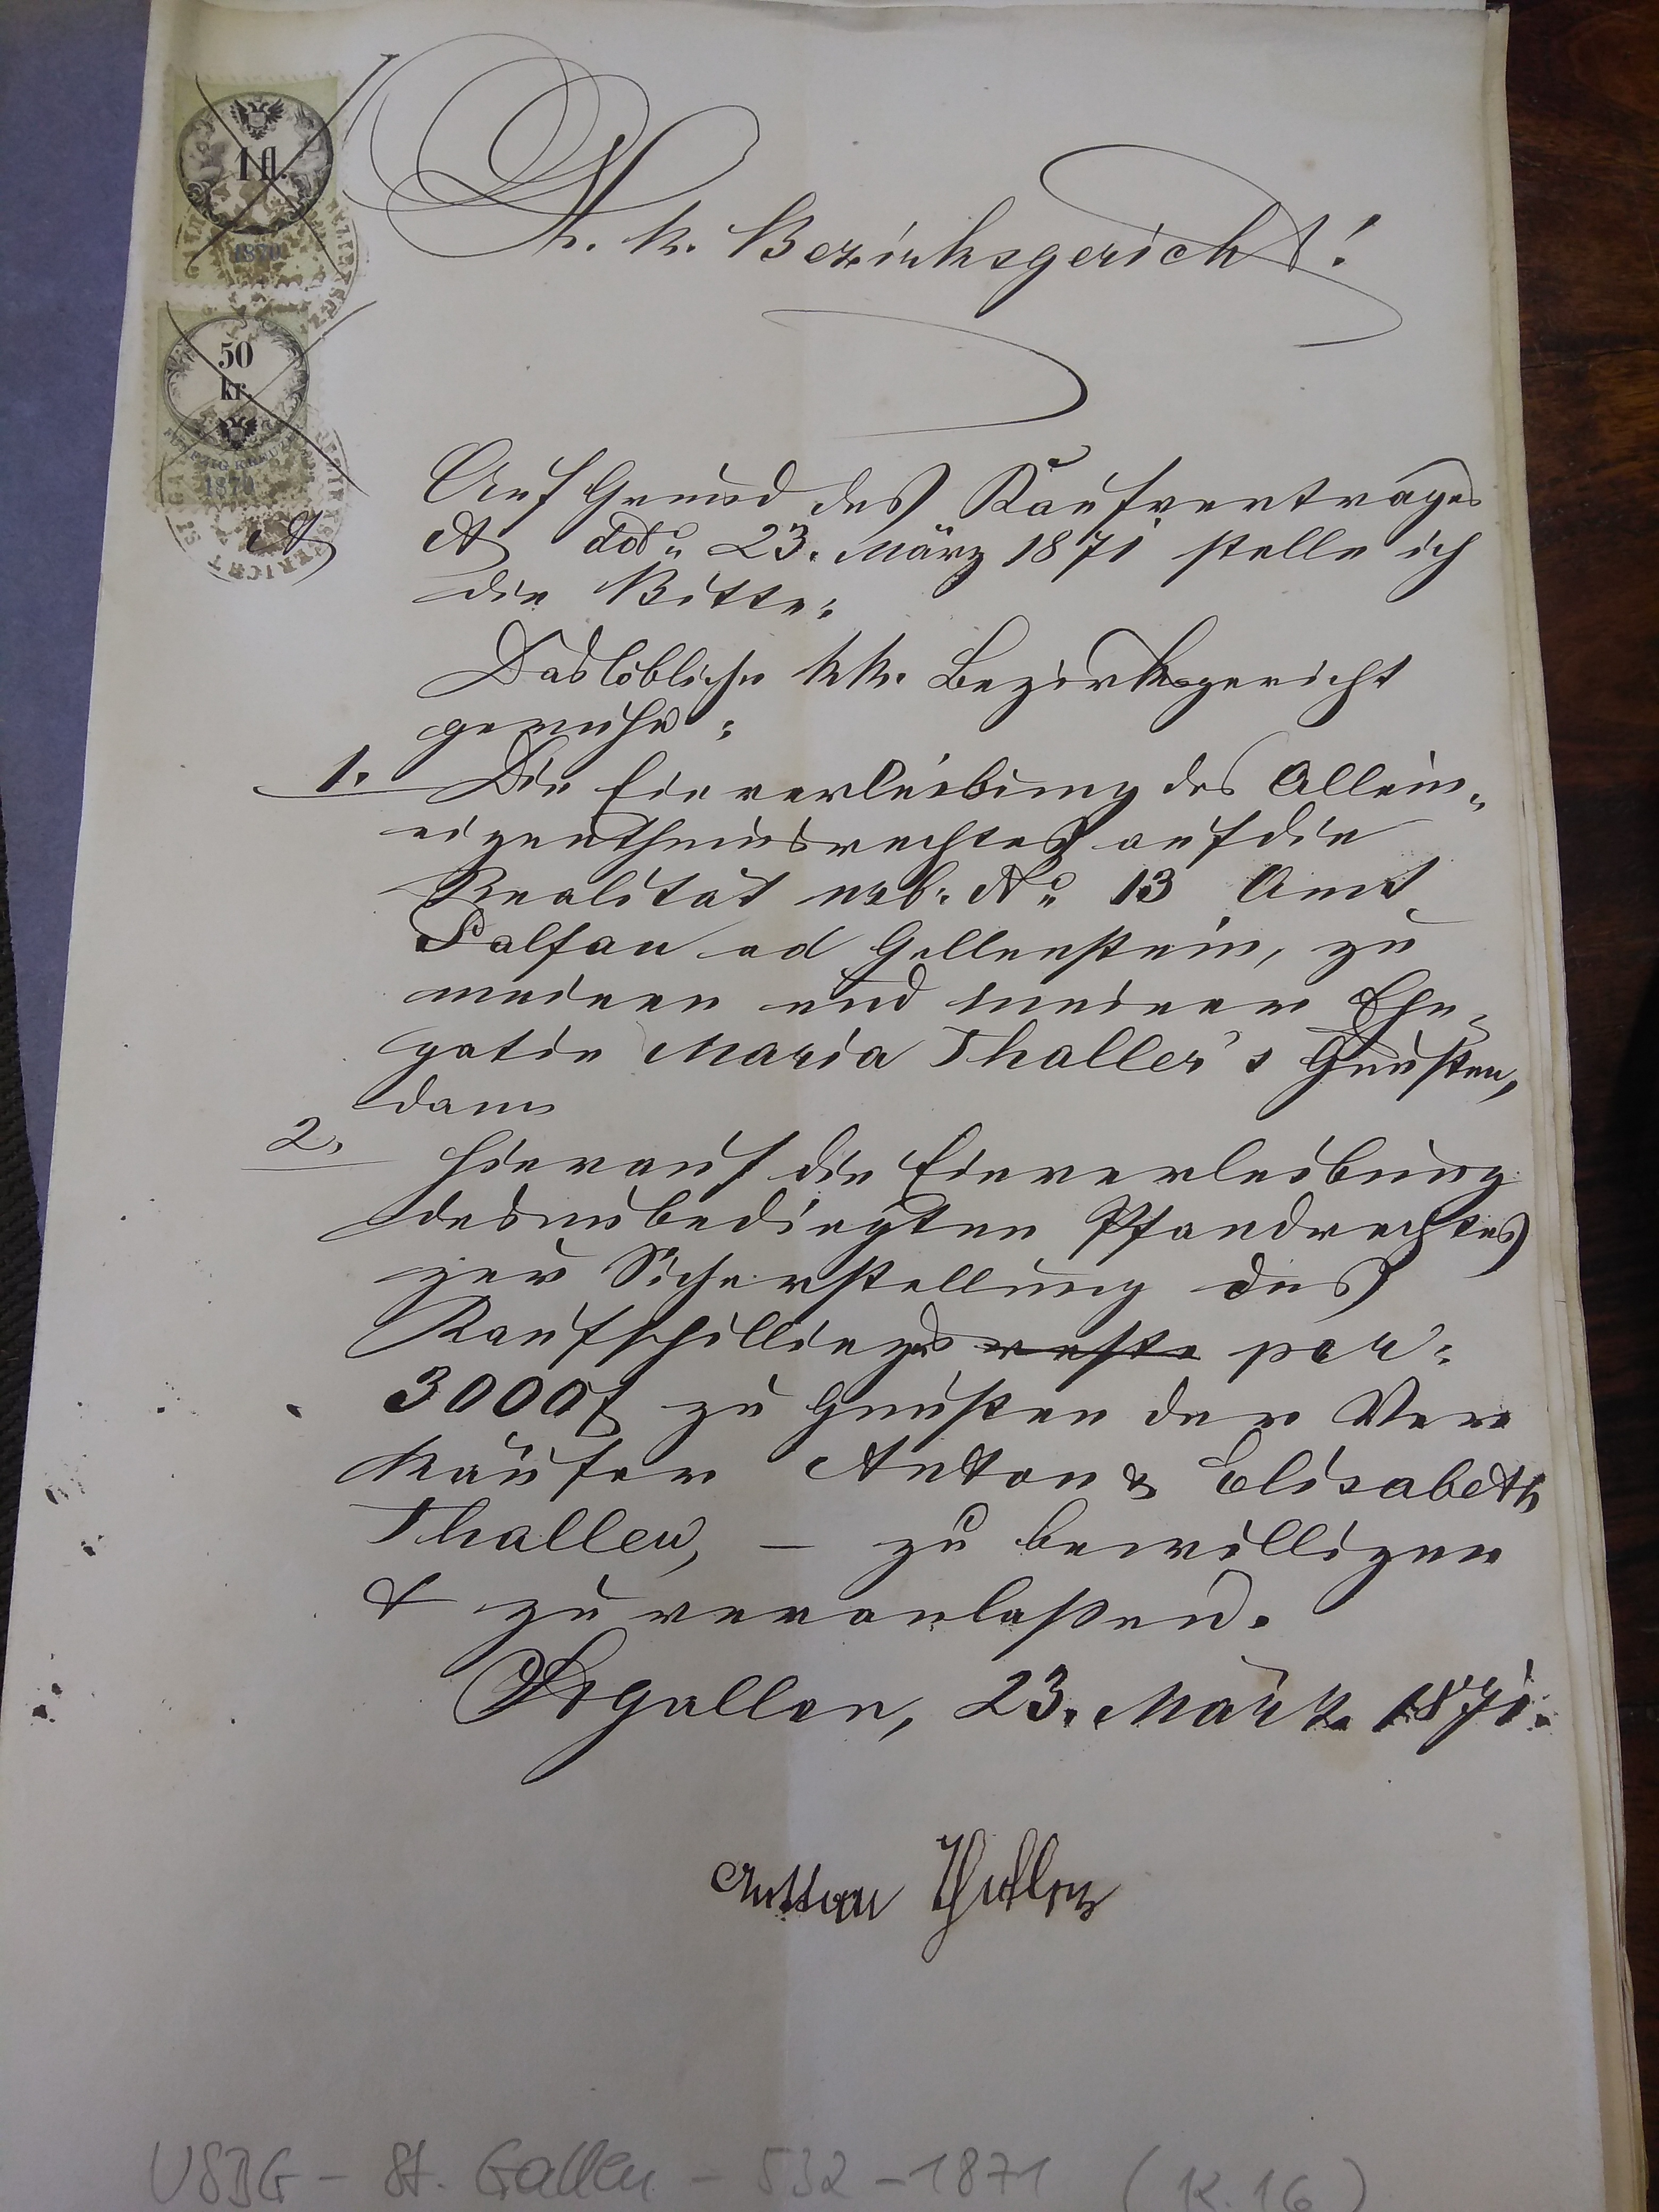 1 fl.
1870
50
kr.
FÜNFZIG KREUZER
1870
K. k. Bezirksgericht!
Auf Grund des Kaufvertrages
A ddo 23. März 1871 stelle ich
die Bitte:
Das löbliche kk. Bezirksgericht
geruhe:
1. Die Einverleibung des Allein-
eigenthumsrechtes auf die
Realität urb. No 13 Amt
Palfau ad Gallenstein, zu
meinen und meiner Ehe-
gatin Maria Thaller's Gunsten,
dann
2. hierauf die Einverleibung
des unbedingten Pfandrechtes
zur Sicherstellung des
Kaufschillings reste per
3000 f zu Gunsten der Ver-
käufer Anton & Elisabeth
Thaller, — zu bewilligen
& zu veranlaßen.
St gallen, 23. März 1871.
Anton Thaller
USBG - St. Gallen - 532 - 1871 (K. 16)